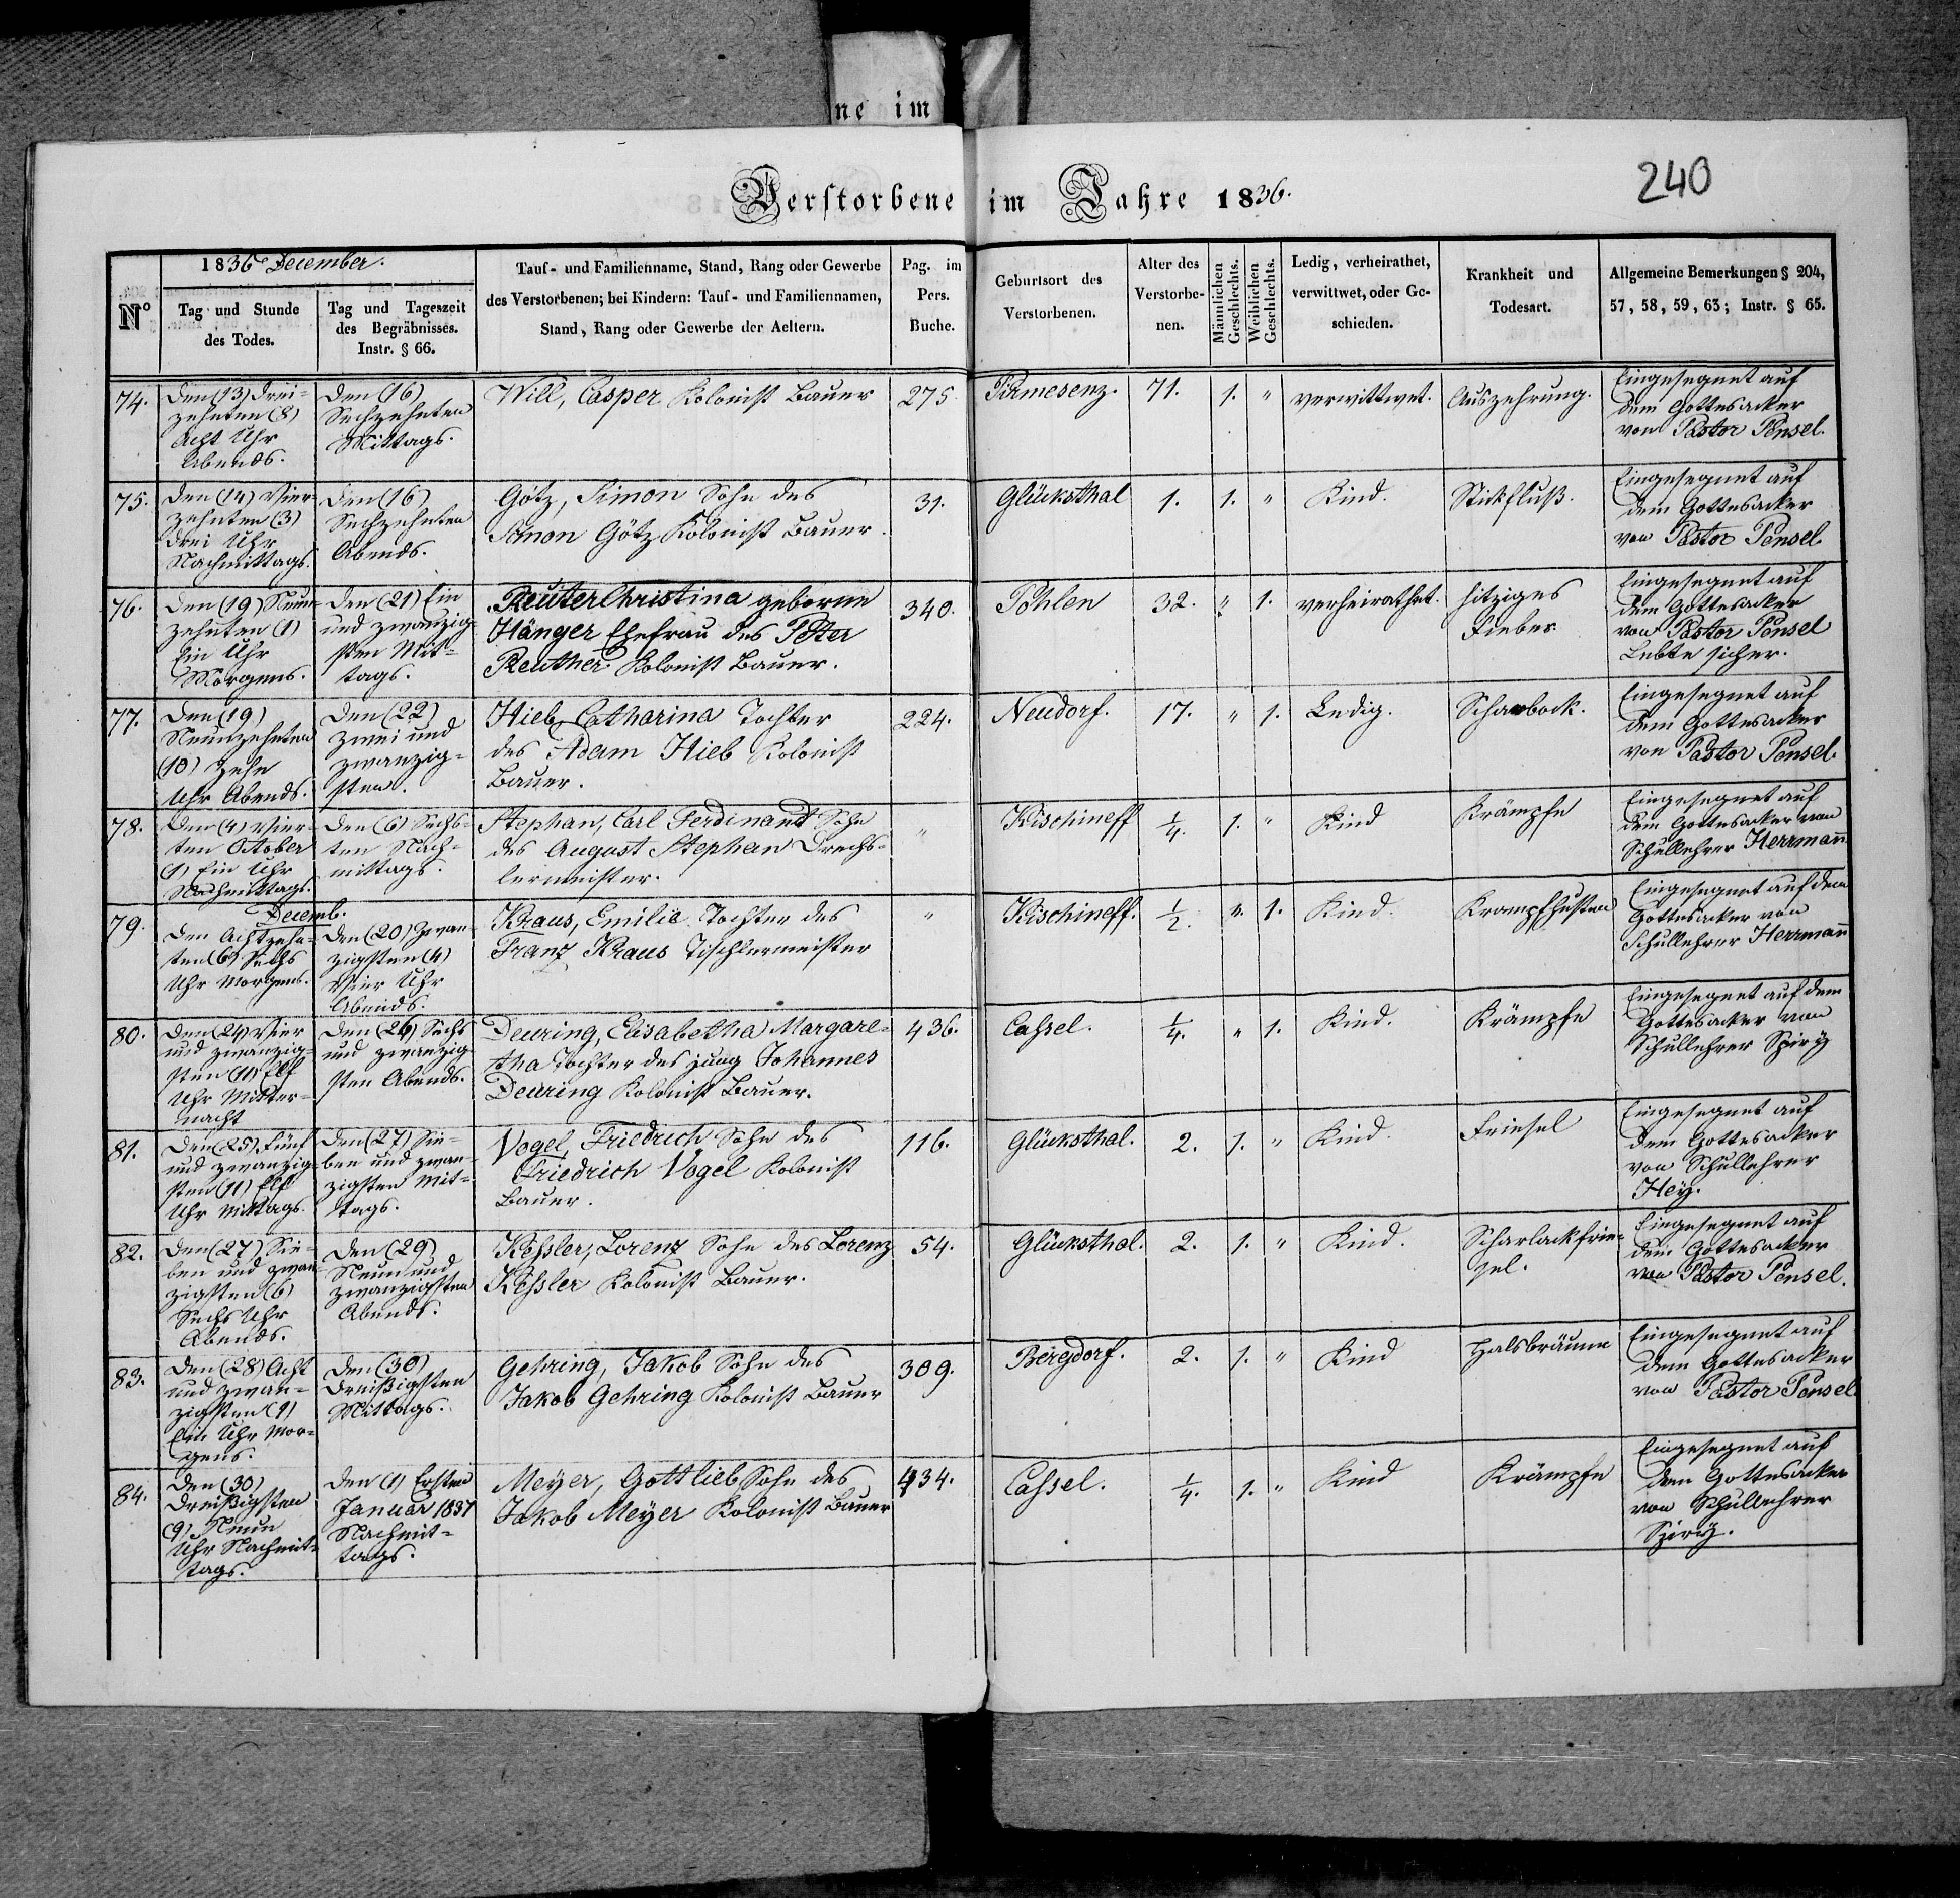 ne im
240
Verstorbene im Jahre 1836.
Nº
1836 December.
Tag und Stunde
des Todes.
Tag und Tageszeit
des Begräbnisses.
Instr. § 66.
Tauf- und Familienname, Stand, Rang oder Gewerbe
des Verstorbenen; bei Kindern: Tauf- und Familiennamen,
Stand, Rang oder Gewerbe der Aeltern.
Pag. im
Pers.
Buche.
Geburtsort des
Verstorbenen.
Alter des
Verstorbe-
nen.
Männlichen
Geschlechts.
Weiblichen
Geschlechts.
Ledig, verheirathet,
verwittwet, oder Ge-
schieden.
Krankheit und
Todesart.
Allgemeine Bemerkungen § 204,
57, 58, 59, 63; Instr. § 65.
74.
Den (13) Drei-
zehnten (8)
Acht Uhr
Abends.
Den (16)
Sechzehnten
Mittags.
Will, Casper Kolonist Bauer
275.
Pirmesenz.
71.
1.
"
verwittwet.
Auszehrung.
Eingesegnet auf
dem Gottesacker
von Pastor Pensel.
75.
Den (14) Vier-
zehnten (3)
Drei Uhr
Nachmittags.
Den (16)
Sechzehnten
Abends.
Götz, Simon Sohn des
Simon Götz Kolonist Bauer.
31.
Glücksthal
1.
1.
"
Kind.
Stickfluß.
Eingesegnet auf
dem Gottesacker
von Pastor Pensel
76.
Den (19) Neun-
zehnten (1)
Ein Uhr
Morgens.
Den (21) Ein
und zwanzig-
sten Mit-
tags.
Reuter Christina geborne
Hänger Ehefrau des Peter
Reuther Kolonist Bauer.
340.
Pohlen
32.
"
1.
verheirathet.
hitziges
Fieber.
Eingesegnet auf
dem Gottesacker
von Pastor Pensel
Lebte sicher.
77.
Den (19)
Neunzehnten
(10) Zehn
Uhr Abends.
Den (22)
Zwei und
zwanzig-
sten.
Hieb, Catharina Tochter
des Adam Hieb Kolonist
Bauer.
224.
Neudorf.
17.
"
1.
Ledig.
Scharbock.
Eingesegnet auf
dem Gottesacker
von Pastor Pensel.
78.
Den (4) Vier-
ten October
(1) Ein Uhr
Nachmittags.
Den (6) Sechs-
ten Nach-
mittags.
Stephan, Carl Ferdinand Sohn
des August Stephan Drechs-
lermeister.
"
Kischineff
1/4.
1.
"
Kind
Krämpfe
Eingesegnet auf
dem Gottesacker von
Schullehrer Herrmann
79.
Decemb.
Den Achtzehn-
ten (6) Sechs
Uhr Morgens.
Den (20) Zwan-
zigsten (4)
Vier Uhr
Abends.
Kraus, Emilie Tochter des
Franz Kraus Tischlermeister
"
Kischineff.
1/2.
"
1.
Kind.
Krampfhusten
Eingesegnet auf dem
Gottesacker von
Schullehrer Herrmann
80.
Den (24) Vier
und zwanzig-
sten (11) Elf
Uhr Mitter-
nacht
Den (26) Sechs
und zwanzig-
sten Abends.
Deuring, Elisabetha Margare-
tha Tochter des jung Johannes
Deuring Kolonist Bauer.
436.
Cassel.
1/4.
"
1.
Kind.
Krämpfe
Eingesegnet auf dem
Gottesacker von
Schullehrer Spirÿ
81.
Den (25) Fünf
und zwanzig-
sten (11) Elf
Uhr Mittags.
Den (27) Sie-
ben und zwan-
zigsten Mit-
tags.
Vogel, Friedrich Sohn des
Friedrich Vogel Kolonist
Bauer.
116.
Glücksthal.
2.
1.
"
Kind.
Friesel
Eingesegnet auf
dem Gottesacker
von Schullehrer
Hey.
82.
Den (27) Sie-
ben und zwan-
zigsten (6)
Sechs Uhr
Abends.
Den (29)
Neun und
zwanzigsten
Abends.
Kessler, Lorenz Sohn des Lorenz
Kessler Kolonist Bauer.
54.
Glücksthal.
2.
1.
"
Kind.
Scharlachfrie-
sel.
Eingesegnet auf
dem Gottesacker
von Pastor Pensel.
83.
Den (28) Acht
und zwan-
zigsten (1)
Ein Uhr Mor-
gens.
Den (30)
Dreißigsten
Mittags.
Gehring, Jakob Sohn des
Jakob Gehring Kolonist Bauer
309.
Bergdorf.
2.
1.
"
Kind
Halsbräune
Eingesegnet auf
dem Gottesacker
von Pastor Pensel
84.
Den (30)
Dreißigsten
(9) Neun
Uhr Nachmit-
tags.
Den (1) Ersten
Januar 1837
Nachmit-
tags.
Meyer, Gottlieb Sohn des
Jakob Meyer Kolonist Bauer
434.
Cassel.
1/4.
1.
"
Kind
Krämpfe
Eingesegnet auf
dem Gottesacker
von Schullehrer
Spirÿ.